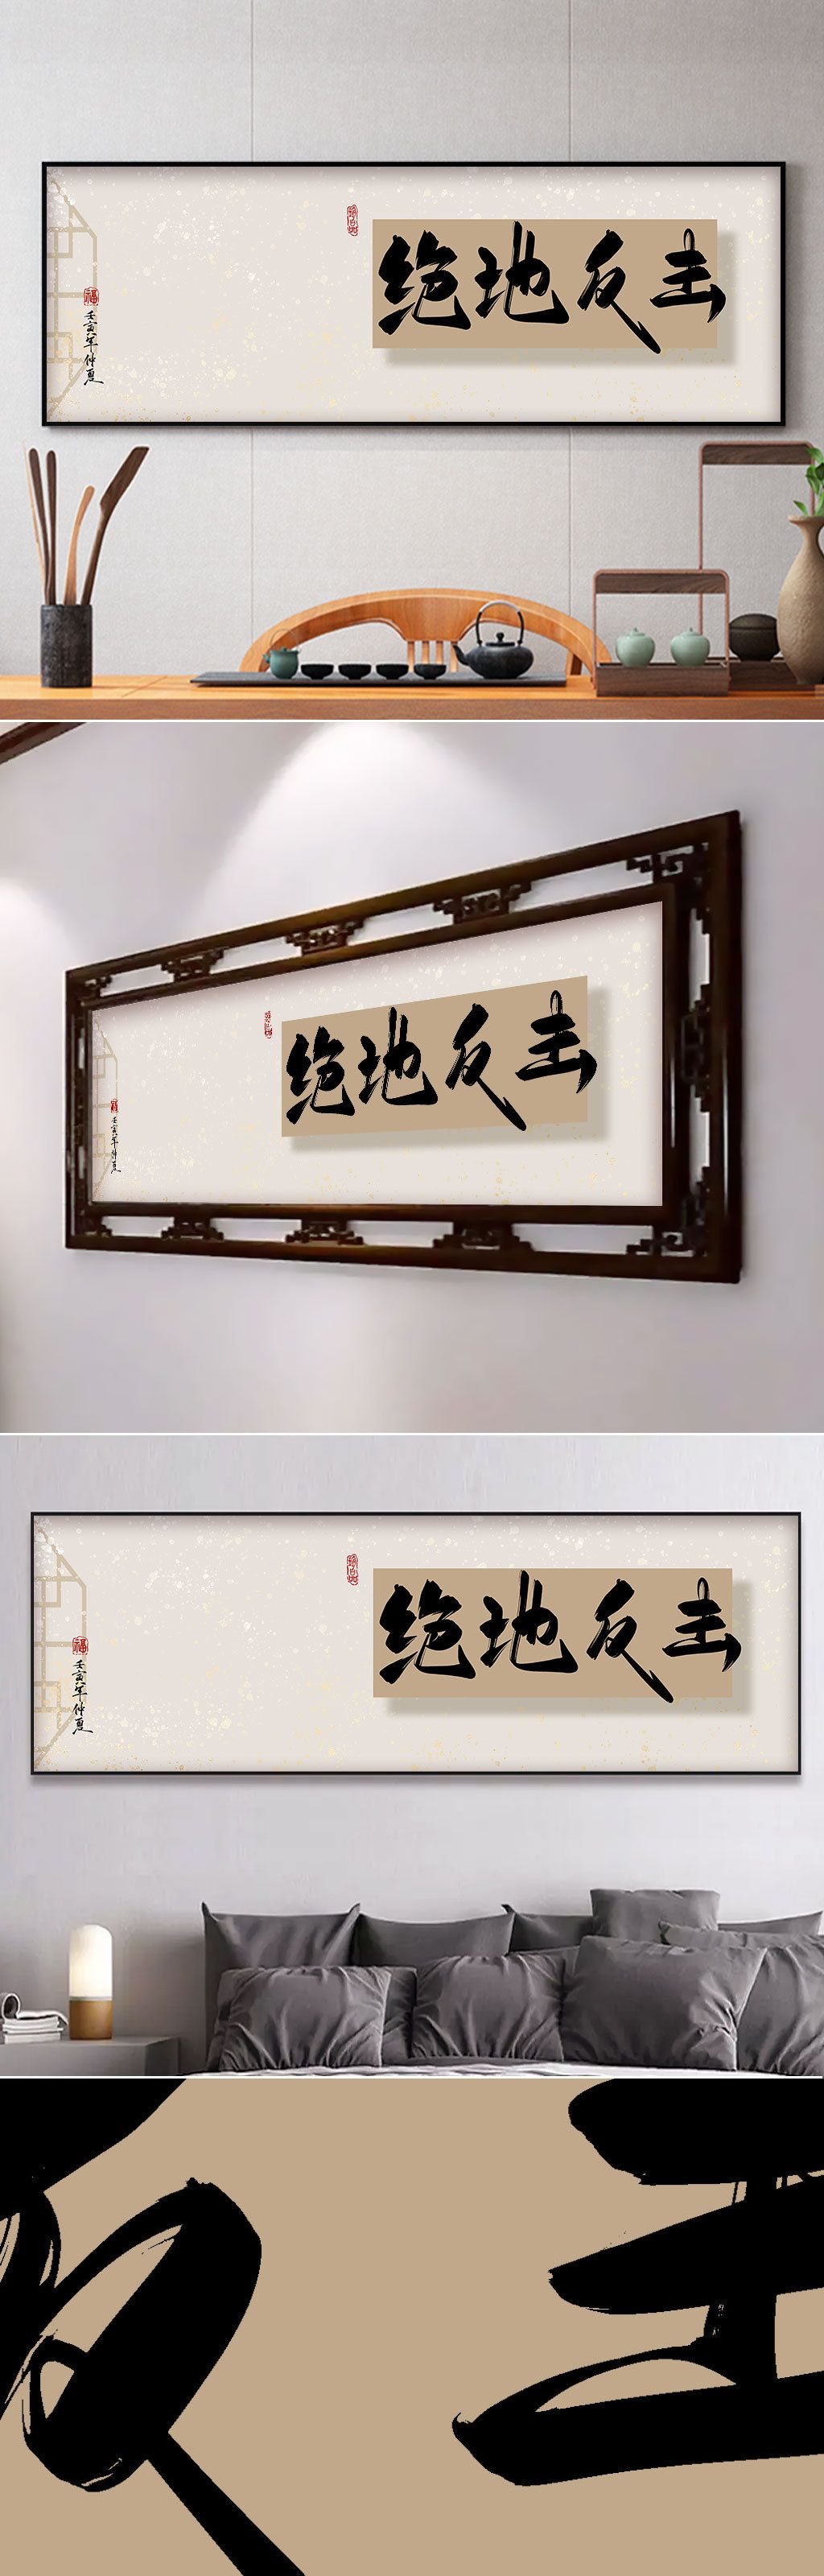 绝地反击
福
壬寅年仲夏
绝地反击
福
壬寅年仲夏
绝地反击
福
壬寅年仲夏